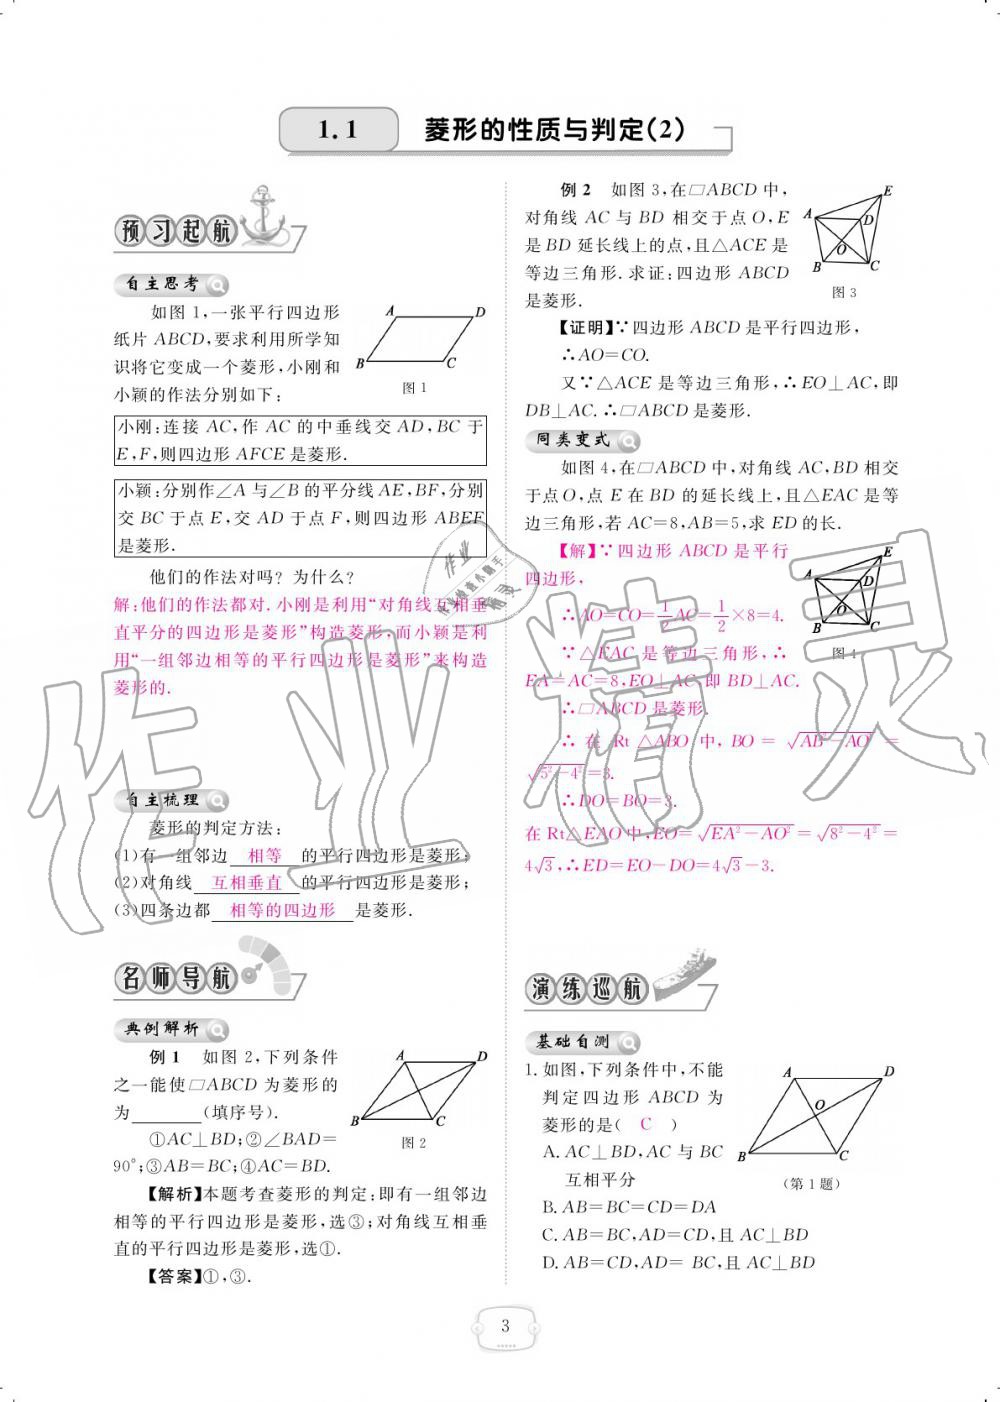 1.1 菱形的性质与判定(2)
预习起航
自主思考
如图 1,一张平行四边形
纸片 ABCD,要求利用所学知
识将它变成一个菱形,小刚和
小颖的作法分别如下:
A D
B C
图 1
小刚:连接 AC,作 AC 的中垂线交 AD,BC 于
E,F,则四边形 AFCE 是菱形.
小颖:分别作∠A 与∠B 的平分线 AE,BF,分别
交 BC 于点 E,交 AD 于点 F,则四边形 ABEF
是菱形.
他们的作法对吗? 为什么?
解:他们的作法都对.小刚是利用“对角线互相垂
直平分的四边形是菱形”构造菱形,而小颖是利
用“一组邻边相等的平行四边形是菱形”来构造
菱形的.
自主梳理
菱形的判定方法:
(1)有一组邻边 相等 的平行四边形是菱形;
(2)对角线 互相垂直 的平行四边形是菱形;
(3)四条边都 相等的四边形 是菱形.
名师导航
典例解析
例 1 如图 2,下列条件
之一能使□ABCD 为菱形的
为________(填序号).
①AC⊥BD;②∠BAD=
90°;③AB=BC;④AC=BD.
A D
B C
图 2
【解析】本题考查菱形的判定:即有一组邻边
相等的平行四边形是菱形,选③;对角线互相垂
直的平行四边形是菱形,选①.
【答案】①,③.
例 2 如图 3,在□ABCD 中,
对角线 AC 与 BD 相交于点 O,E
是 BD 延长线上的点,且△ACE 是
等边三角形.求证:四边形 ABCD
是菱形.
E
A D
O
B C
图 3
【证明】∵四边形 ABCD 是平行四边形,
∴AO=CO.
又∵△ACE 是等边三角形,∴EO⊥AC,即
DB⊥AC.∴□ABCD 是菱形.
同类变式
如图 4,在□ABCD 中,对角线 AC,BD 相交
于点 O,点 E 在 BD 的延长线上,且△EAC 是等
边三角形,若 AC=8,AB=5,求 ED 的长.
【解】∵四边形 ABCD 是平行
四边形,
∴AO=CO=1/2AC=1/2×8=4.
∵△EAC 是等边三角形,∴
EA=AC=8,EO⊥AC,即 BD⊥AC.
E
A D
O
B C
图 4
∴□ABCD 是菱形.
∴ 在 Rt △ABO 中, BO = √(AB²−AO²) =
√(5²−4²)=3.
∴DO=BO=3.
在 Rt△EAO 中,EO=√(EA²−AO²)=√(8²−4²)=
4√3,∴ED=EO−DO=4√3−3.
演练巡航
基础自测
1.如图,下列条件中,不能
判定四边形 ABCD 为
菱形的是( C )
A.AC⊥BD,AC 与 BC
互相平分
A D
O
B C
(第 1 题)
B.AB=BC=CD=DA
C.AB=BC,AD=CD,且 AC⊥BD
D.AB=CD,AD=BC,且 AC⊥BD
3
作业精灵